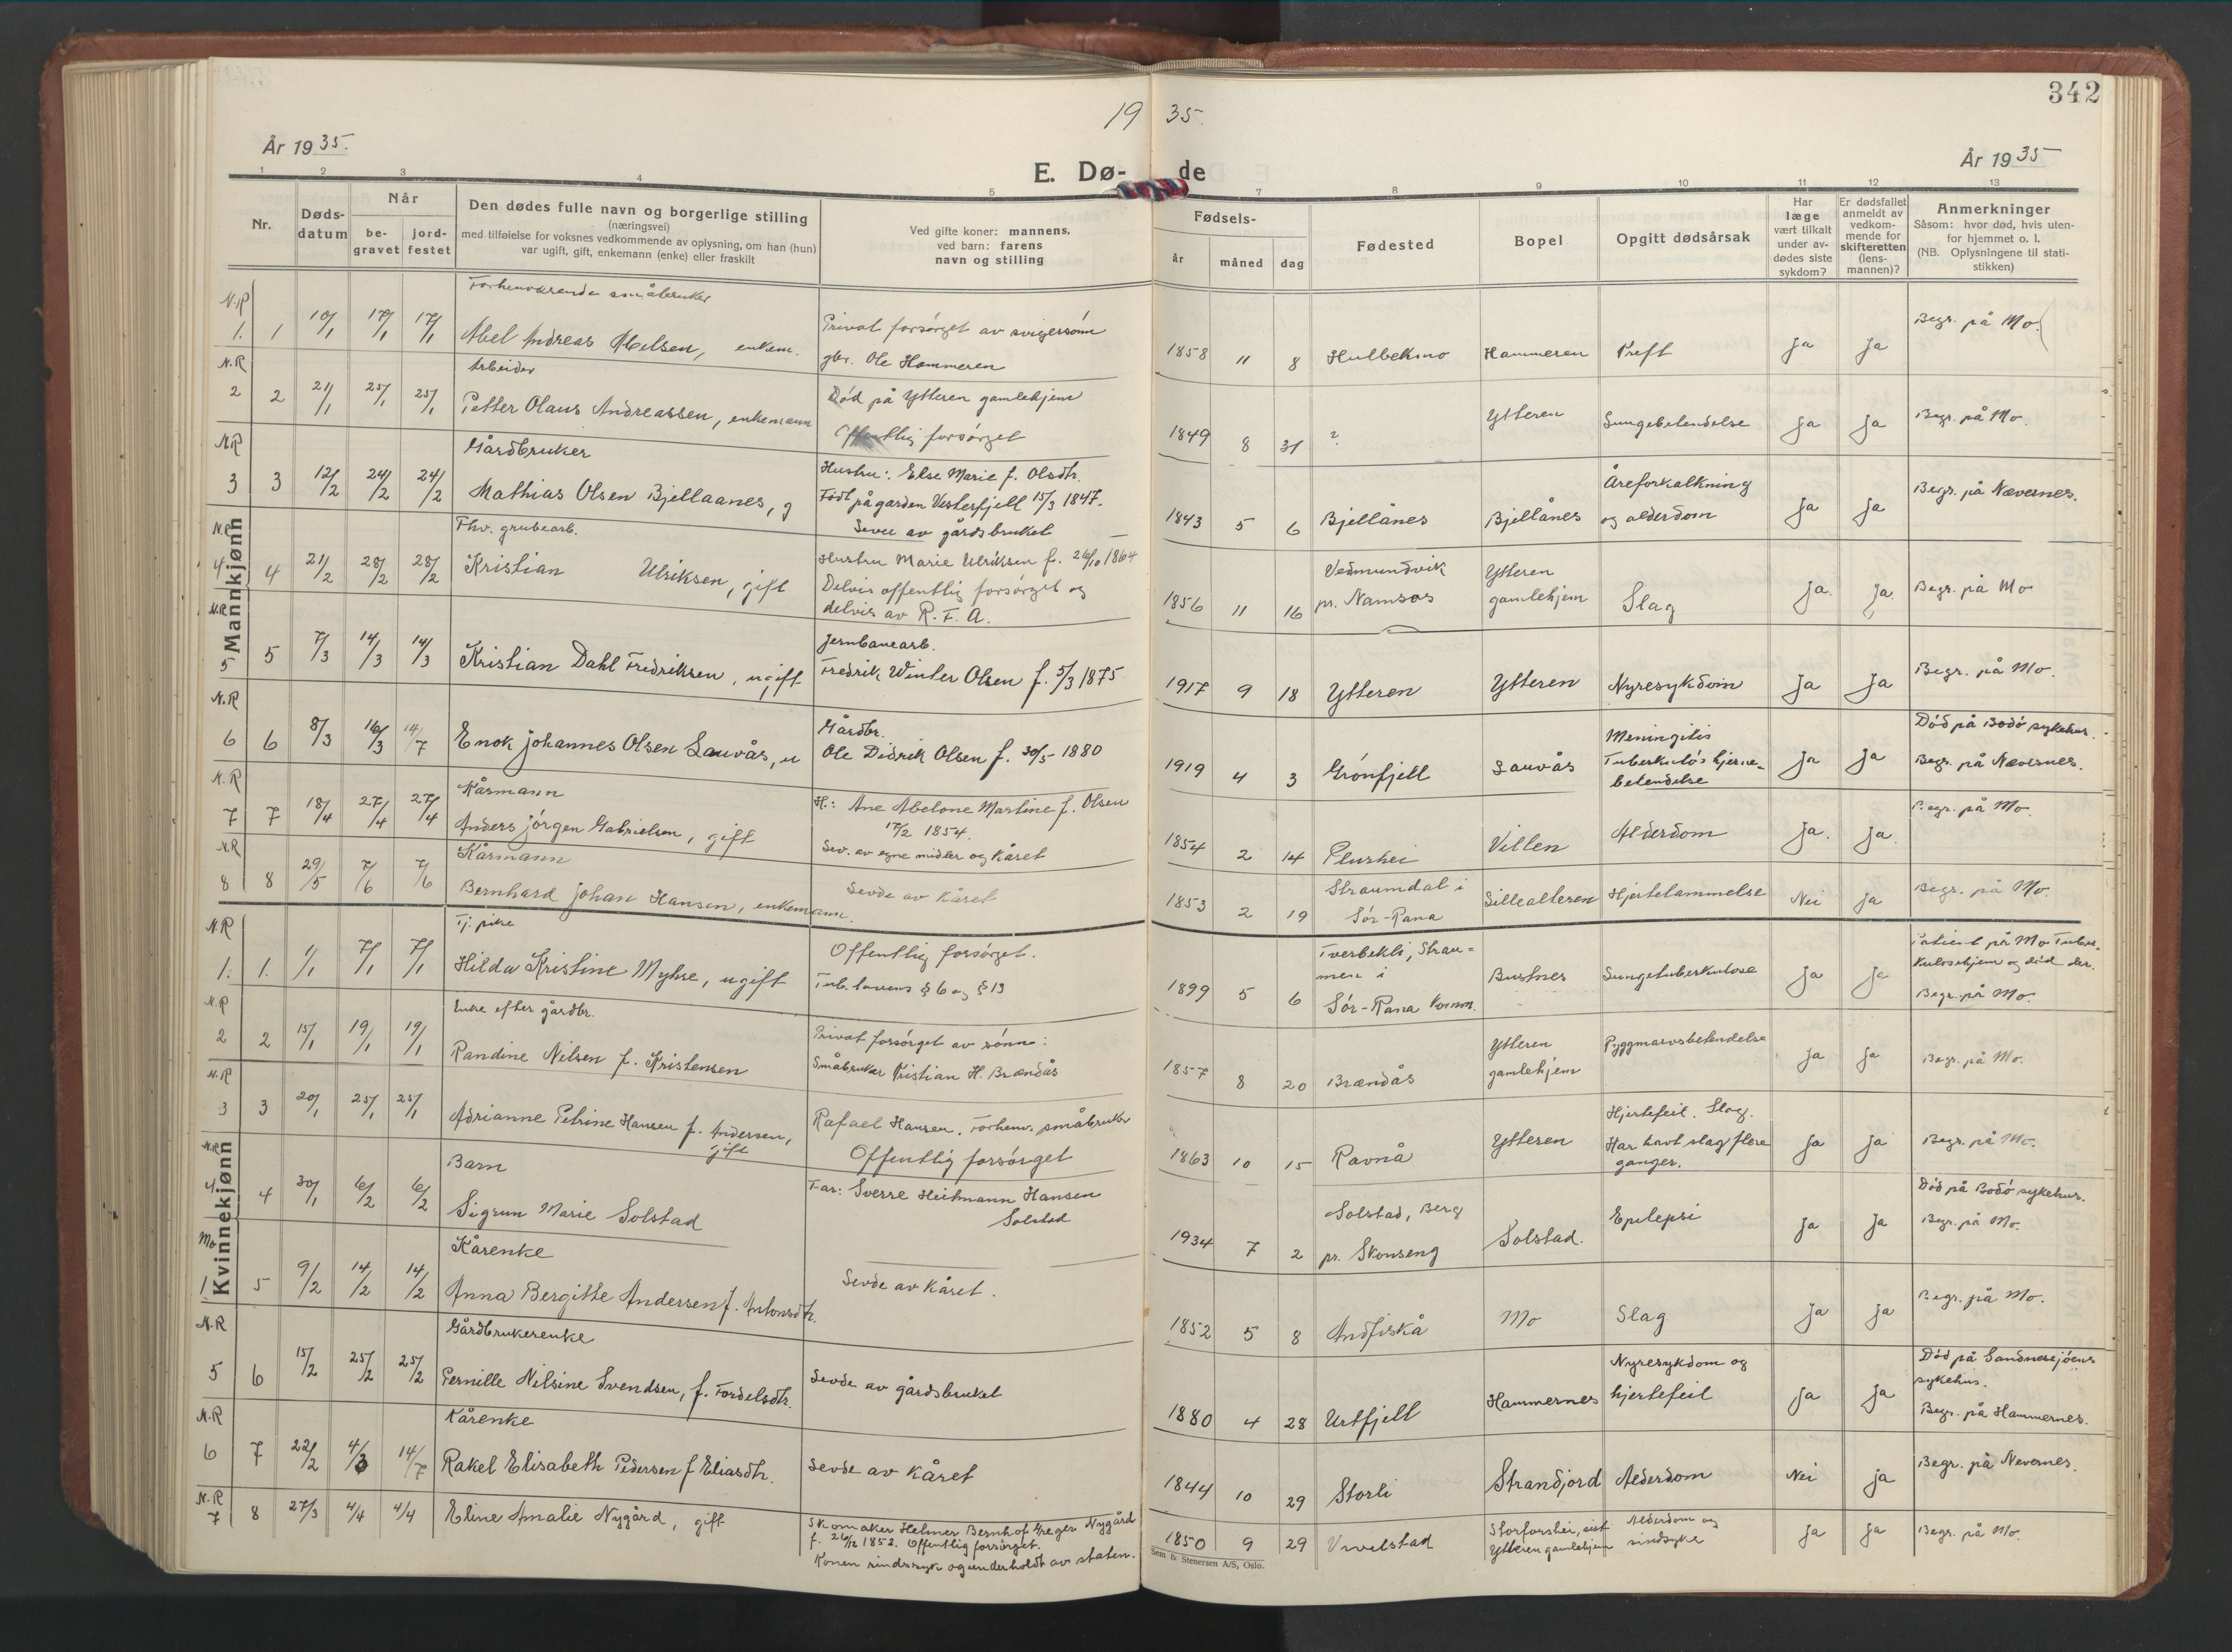 342
19 35.
År 1935.
År 1935
E. Dø- de
1 2 3 4 5 7 8 9 10 11 12 13
Nr.
Døds-
datum
Når
be-
gravet
jord-
festet
Den dødes fulle navn og borgerlige stilling
(næringsvei)
med tilføielse for voksnes vedkommende av oplysning, om han (hun)
var ugift, gift, enkemann (enke) eller fraskilt
Ved gifte koner: mannens,
ved barn: farens
navn og stilling
Fødsels-
år måned dag
Fødested
Bopel
Opgitt dødsårsak
Har
læge
vært tilkalt
under av-
dødes siste
sykdom?
Er dødsfallet
anmeldt av
vedkom-
mende for
skifteretten
(lens-
mannen)?
Anmerkninger
Såsom: hvor død, hvis uten-
for hjemmet o. l.
(NB. Oplysningene til stati-
stikken)
Mannkjønn
N.R
1. 1 10/1 17/1 17/1
Forhenværende småbruker
Abel Andreas Abelsen, enkem.
Privat forsørget av svigersønn
gbr. Ole Hammeren
1858 11 8 Hulbekmo Hammeren Kreft Ja Ja Begr. på Mo.
N.R
2 2 21/1 25/1 25/1
Arbeider
Petter Olaus Andreassen, enkemann
Død på Ytteren gamlehjem
Offentlig forsørget
1849 8 31 ? Ytteren Lungebetendelse Ja Ja Begr. på Mo.
N.R
3 3 12/2 24/2 24/2
Gårdbruker
Mathias Olsen Bjellaanes, g
Hustru: Else Marie f. Olsdtr.
Født på garden Vesterfjell 15/3 1847.
Levet av gårdsbruket
1843 5 6 Bjellånes Bjellånes
Åreforkalkning
og alderdom
Ja Ja Begr. på Nævernes.
N.R
4 4 21/2 28/2 28/2
Fhv. grubearb.
Kristian Ulriksen, gift
Hustru Marie Ulriksen f. 26/10 1864
Delvis offentlig forsørget og
delvis av R.F.A.
1856 11 16
Vedmundvik
pr. Namsos
Ytteren
gamlehjem
Slag Ja. Ja. Begr. på Mo
N.R
5 5 7/3 14/3 14/3
Kristian Dahl Fredriksen, ugift
Jernbanearb.
Fredrik Winter Olsen f. 5/3 1875
1917 9 18 Ytteren Ytteren Nyresykdom Ja Ja Begr. på Mo.
N.R
6 6 8/3 16/3 14/7
Enok Johannes Olsen Lauvås, u
Gårdbr.
Ole Didrik Olsen f. 30/5-1880
1919 4 3 Grønfjell Lauvås
Meningitis
Tuberkuløs hjerne-
betendelse
Ja Ja
Død på Bodø sykehus.
Begr. på Nævernes.
N.R
7 7 18/4 27/4 27/4
Kårmann
Anders Jørgen Gabrielsen, gift
H.: Ane Abelone Martine f. Olsen
17/2 1854.
Lev. av egne midler og kåret
1854 2 14 Plurhei Villen Alderdom Ja. Ja. Begr. på Mo.
N.R
8 8 29/5 7/6 7/6
Kårmann
Bernhard Johan Hansen, enkemann.
Levde av kåret
1853 2 19
Straumdal i
Sør-Rana
Lillealteren Hjertelammelse Nei Ja Begr. på Mo.
Kvinnekjønn
N.R
1. 1. 1/1 7/1 7/1
Tj. pike
Hilda Kristine Myhre, ugift
Offentlig forsørget.
Tub. lovens § 6 og § 13
1899 5 6
Tverbekli, Strau-
men i
Sør-Rana komm.
Bustnes Lungetuberkulose Ja Ja
Patient på Mo Tuber-
kulosehjem og død der.
Begr. på Mo.
N.R
2 2 15/1 19/1 19/1
Enke efter gårdbr.
Randine Nilsen f. Kristensen
Privat forsørget av sønn:
Småbruker Kristian H. Brændås
1857 8 20 Brændås
Ytteren
gamlehjem
Ryggmarvsbetendelse Ja Ja Begr. på Mo.
N.R
3 3 20/1 25/1 25/1
Adrianne Petrine Hansen f. Andersen,
gift
Rafael Hansen. Forhenv. småbruker
Offentlig forsørget
1863 10 15 Ravnå Ytteren
Hjertefeil. Slag.
Har havt slag flere
ganger.
Ja Ja Begr. på Mo.
N.R
4 4 30/1 6/2 6/2
Barn
Sigrun Marie Solstad
Far: Sverre Heitmann Hansen
Solstad
1934 7 2
Solstad, Berg
pr. Skonseng
Solstad. Epilepsi Ja Ja
Død på Bodø sykehus.
Begr. på Mo.
Mo
1 5 9/2 14/2 14/2
Kårenke
Anna Bergitte Andersen f. Antonsdtr.
Levde av kåret.
1852 5 8 Andfiskå Mo Slag Ja Ja Begr. på Mo.
N.R
5 6 15/2 25/2 25/2
Gårdbrukerenke
Pernille Nilsine Svendsen, f. Fordelsdtr.
Levde av gårdsbruket
1880 4 28 Urtfjell Hammernes
Nyresykdom og
hjertefeil
Ja Ja
Død på Sandnessjøens
sykehus.
Begr. på Hammernes.
N.R
6 7 22/2 4/3 14/7
Kårenke
Rakel Elisabeth Pedersen f Eliasdtr.
Levde av kåret
1844 10 29 Storli Strandjord Alderdom Nei Ja Begr. på Nevernes.
N.R
7 8 27/3 4/4 4/4
Eline Amalie Nygård, gift
Skomaker Helmer Bernhof Greger Nygård
f. 26/12 1852. Offentlig forsørget.
Konen sindssyk og underholdt av staten.
1850 9 29 Vevelstad
Storforshei, sist
Ytteren gamlehjem
Alderdom og
sindsyke
Ja Ja Begr. på Mo.
Sem & Stenersen A/S, Oslo.